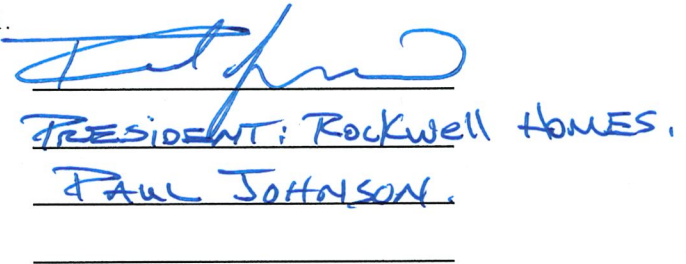 PRESIDENT: ROCKWELL HOMES.
PAUL JOHNSON.